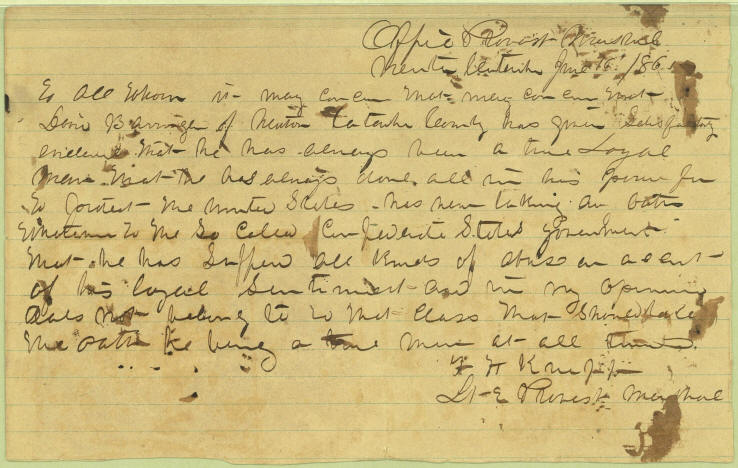 Office Provost Marshal
Newton Catawba June 16 186
To All Whom it may concern that may concern that
Levi Barringer of Newton Catawba County has given Satisfactory
evidence that he has always been a true Loyal
Man that he has always done all in his power for
to protect the United States has never taking an oath
Whatever to the So Caled Confederate States government
that he has Suffered all kinds of abuse on account
of his loyal Sentiment and in my opinion
does not belong to to that Class that Should take
the oath he being a true man at all times.
Knapp
Lt & Provost Marshal